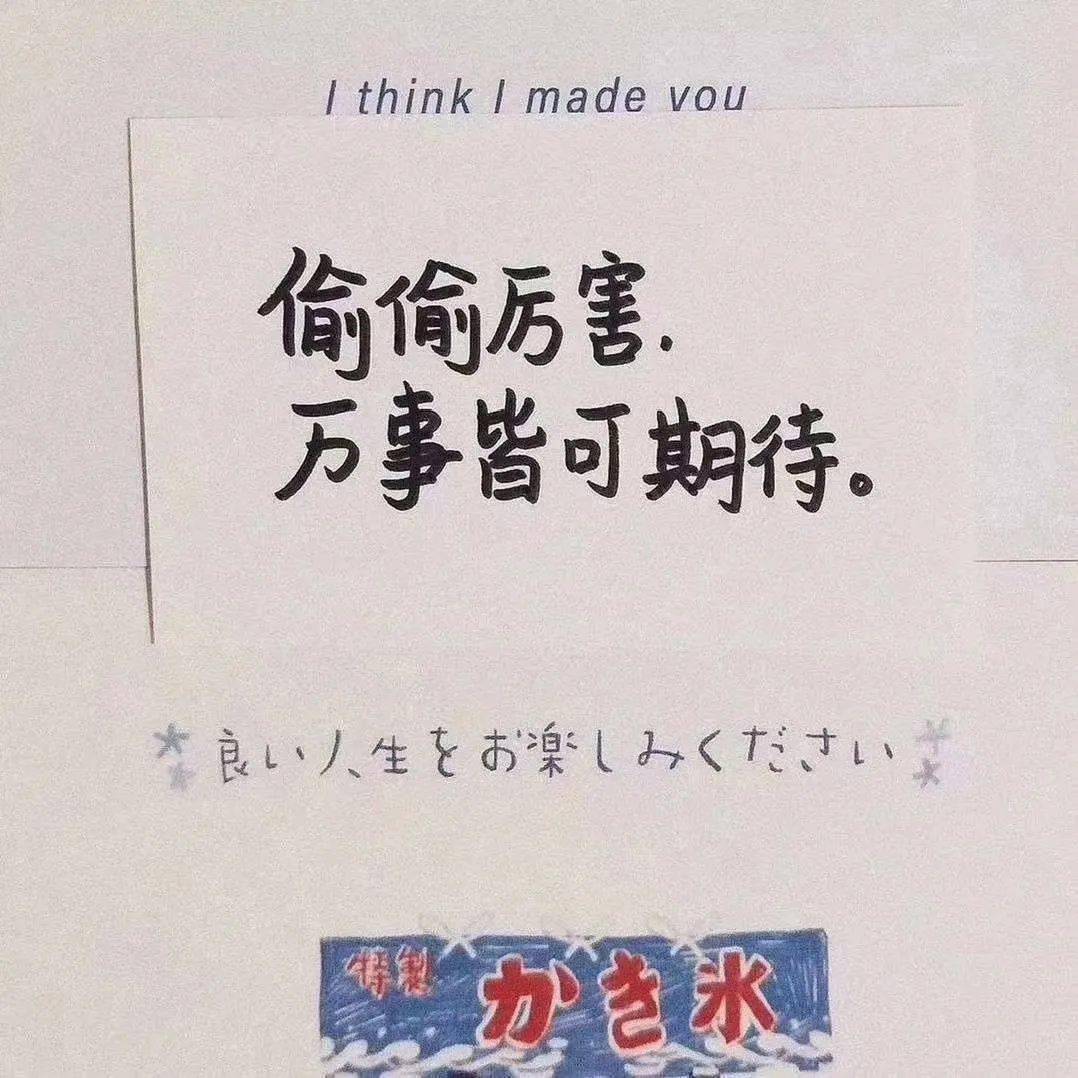 I think I made you
偷偷厉害.
万事皆可期待。
良い人生をお楽しみください
特製 かき氷